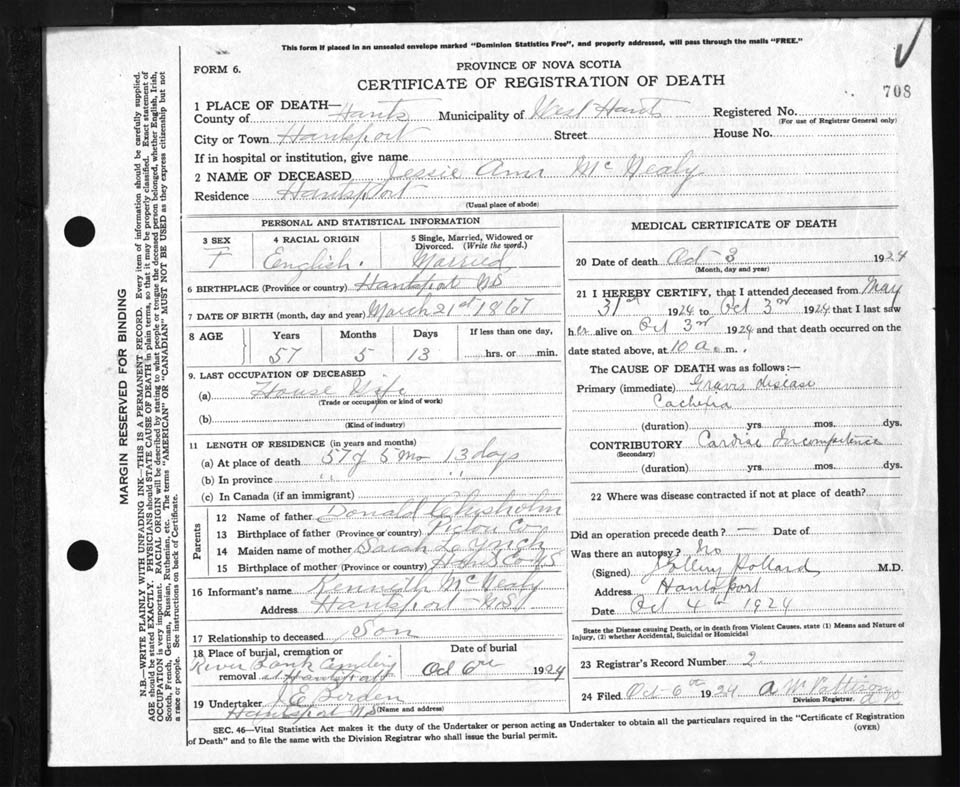 This form if placed in an unsealed envelope marked "Dominion Statistics Free", and properly addressed, will pass through the mails "FREE."
FORM 6.
PROVINCE OF NOVA SCOTIA
CERTIFICATE OF REGISTRATION OF DEATH
708
1 PLACE OF DEATH—
County of Hants Municipality of West Hants Registered No.
(For use of Registrar General only)
City or Town Hantsport Street House No.
If in hospital or institution, give name
2 NAME OF DECEASED Jessie Ann McNealy
Residence Hantsport
(Usual place of abode)
PERSONAL AND STATISTICAL INFORMATION
3 SEX 4 RACIAL ORIGIN 5 Single, Married, Widowed or Divorced. (Write the word.)
F English. Married
6 BIRTHPLACE (Province or country) Hantsport NS
7 DATE OF BIRTH (month, day and year) March 21st 1867
8 AGE Years Months Days If less than one day,
57 5 13 hrs. or min.
9. LAST OCCUPATION OF DECEASED
(a) House Wife
(Trade or occupation or kind of work)
(b)
(Kind of industry)
11 LENGTH OF RESIDENCE (in years and months)
(a) At place of death 57 y 5 Mo 13 days
(b) In province " "
(c) In Canada (if an immigrant)
Parents
12 Name of father Donald Chysholm
13 Birthplace of father (Province or country) Pictou Co
14 Maiden name of mother Sarah Lynch
15 Birthplace of mother (Province or country) Hants Co NS
16 Informant's name Kenneth McNealy
Address Hantsport NS
17 Relationship to deceased Son
18 Place of burial, cremation or removal Date of burial
River Bank at Hantsport Oct 6th 1924
19 Undertaker J E Borden
Hantsport NS (Name and address)
MEDICAL CERTIFICATE OF DEATH
20 Date of death Oct 3 1924
(Month, day and year)
21 I HEREBY CERTIFY, that I attended deceased from May
31st 1924 to Oct 3rd 1924 that I last saw
her alive on Oct 3rd 1924 and that death occurred on the
date stated above, at 10 a.m.
The CAUSE OF DEATH was as follows:—
Primary (immediate) Graves disease
Cachexia
(duration) yrs. mos. dys.
CONTRIBUTORY Cardiac Incompetence
(Secondary)
(duration) yrs. mos. dys.
22 Where was disease contracted if not at place of death?
Did an operation precede death? — Date of
Was there an autopsy? No
(Signed) Pollard M.D.
Address Hantsport
Date Oct 4th 1924
State the Disease causing Death, or in death from Violent Causes, state (1) Means and Nature of Injury, (2) whether Accidental, Suicidal or Homicidal
23 Registrar's Record Number 2
24 Filed Oct 6th 1924
Division Registrar.
SEC. 46—Vital Statistics Act makes it the duty of the Undertaker or person acting as Undertaker to obtain all the particulars required in the "Certificate of Registration
of Death" and to file the same with the Division Registrar who shall issue the burial permit.
(OVER)
MARGIN RESERVED FOR BINDING
N.B.—WRITE PLAINLY WITH UNFADING INK—THIS IS A PERMANENT RECORD. Every item of information should be carefully supplied.
AGE should be stated EXACTLY. PHYSICIANS should STATE CAUSE OF DEATH in plain terms, so that it may be properly classified. Exact statement of
OCCUPATION is very important. RACIAL ORIGIN will be described by stating to what people or tongue the deceased person belonged, whether English, Irish,
Scotch, French, German, Russian, Ruthenian, etc. The terms "AMERICAN" or "CANADIAN" MUST NOT BE USED as they express citizenship but not
a race or people. See instructions on back of Certificate.